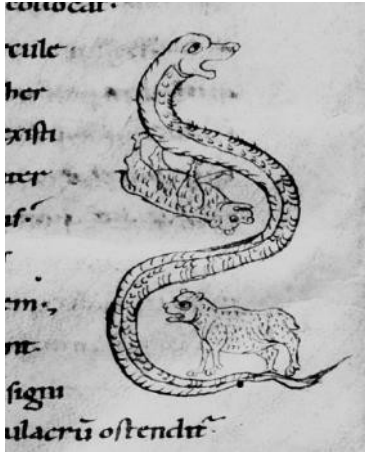 collocat·
rcule
her
existi
ter
uſ·
em·,
nt·
signi
ulacrū ostendit